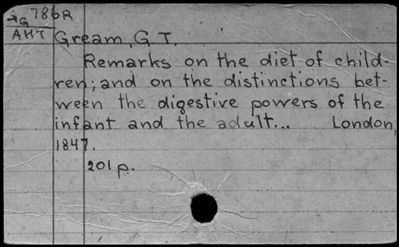 →G 786R
AHT Gream, G T.
Remarks on the diet of child-
ren; and on the distinctions bet-
ween the digestive powers of the
infant and the adult... London,
1847.
201 p.